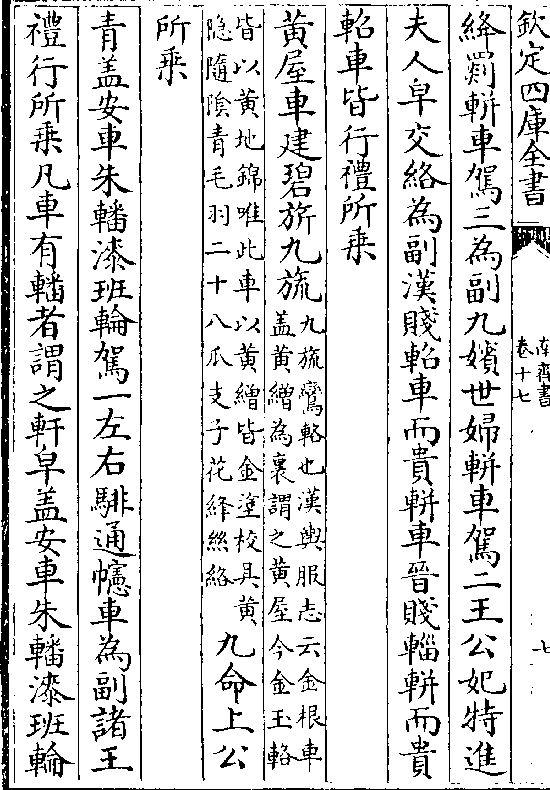 欽定四庫全書
南齊書
卷十七
七
絳罽軿車駕三為副九嬪世婦軿車駕二王公妃特進
夫人皁交絡為副漢賤軺車而貴軿車晉賤輜軿而貴
軺車皆行禮所乗
黄屋車建碧旂九旒九旒鸞輅也漢輿服志云金根車
盖黄繒為裏謂之黄屋今金玉輅
皆以黄地錦唯此車以黄繒皆金塗校具黄
隐隨隂青毛羽二十八爪支子花絳絲絡九命上公
所乗
青盖安車朱轓漆班輪駕一左右騑通幰車為副諸王
禮行所乗凡車有轓者謂之軒皁盖安車朱轓漆班輪